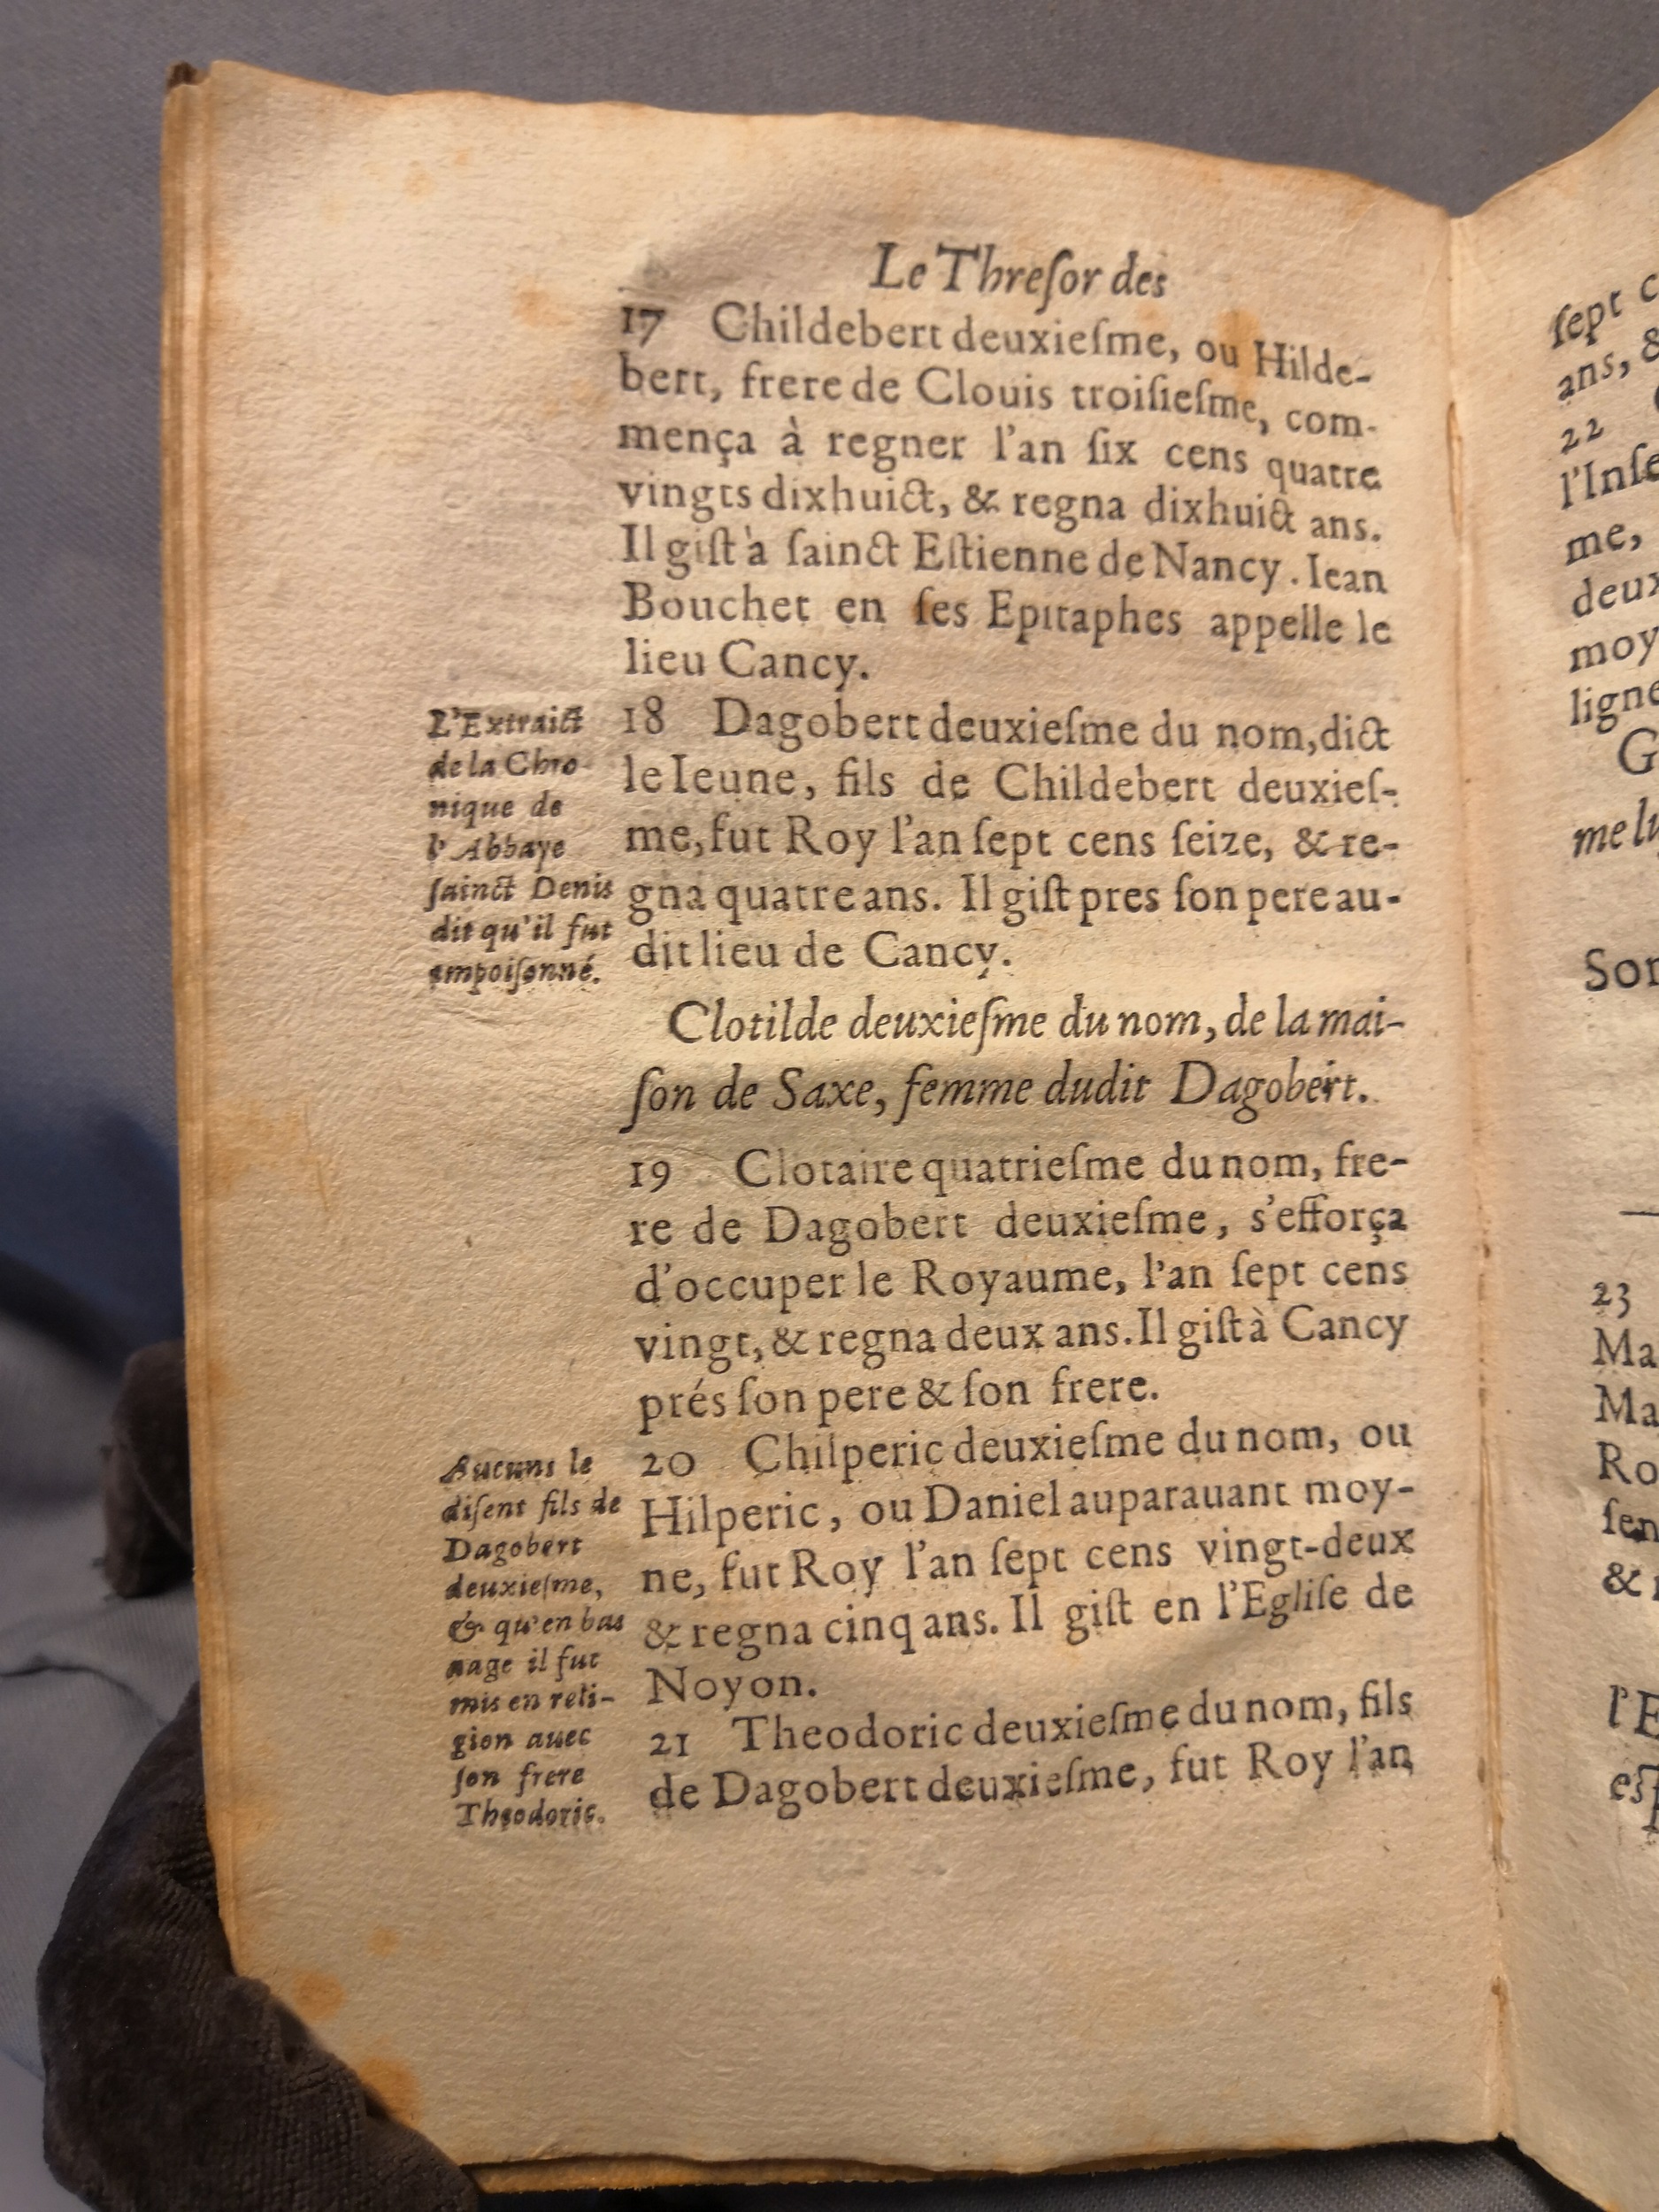 Le Threſor des
17 Childebert deuxieſme, ou Hilde-
bert, frere de Clouis troiſieſme, com-
mença à regner l'an ſix cens quatre
vingts dixhuict, & regna dixhuict ans.
Il giſt à ſainct Eſtienne de Nancy. Iean
Bouchet en ſes Epitaphes appelle le
lieu Cancy.
L'Extraict
de la Chro-
nique de
l'Abbaye
ſainct Denis
dit qu'il fut
empoiſonné.
18 Dagobert deuxieſme du nom, dict
le Ieune, fils de Childebert deuxieſ-
me, fut Roy l'an ſept cens ſeize, & re-
gna quatre ans. Il giſt pres ſon pere au-
dit lieu de Cancy.
Clotilde deuxieſme du nom, de la mai-
ſon de Saxe, femme dudit Dagobert.
19 Clotaire quatrieſme du nom, fre-
re de Dagobert deuxieſme, s'efforça
d'occuper le Royaume, l'an ſept cens
vingt, & regna deux ans. Il giſt à Cancy
prés ſon pere & ſon frere.
Aucuns le
diſent fils de
Dagobert
deuxieſme,
& qu'en bas
aage il fut
mis en reli-
gion auec
ſon frere
Theodoric.
20 Chilperic deuxieſme du nom, ou
Hilperic, ou Daniel auparauant moy-
ne, fut Roy l'an ſept cens vingt-deux
& regna cinq ans. Il giſt en l'Egliſe de
Noyon.
21 Theodoric deuxieſme du nom, fils
de Dagobert deuxieſme, fut Roy l'an
ſept
ans, &
22
l'Inſe
me,
deux
moy
ligne
G
me
Son
23
Ma
Ma
Ro
ſen
&
l'E
eſp